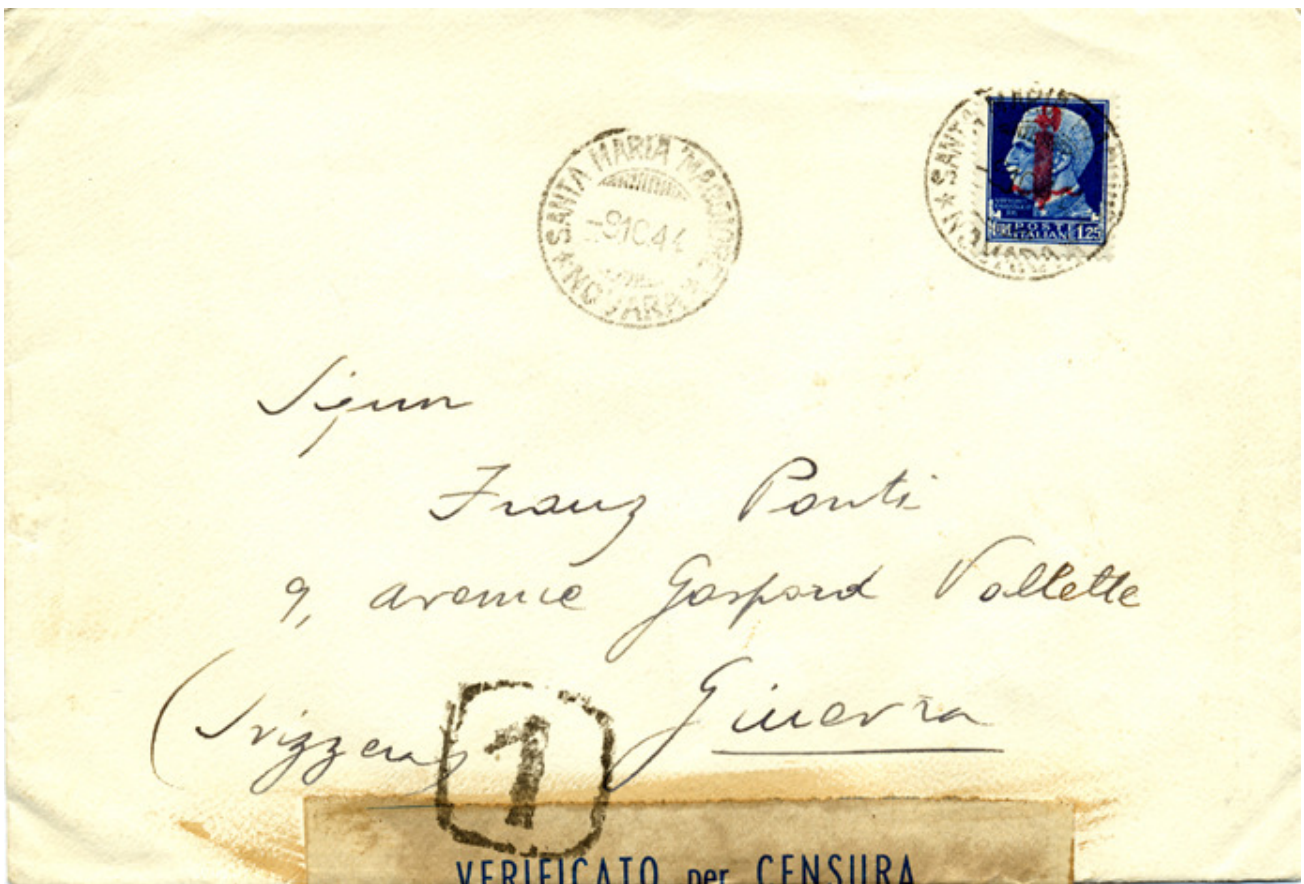 SANTA MARIA MAGGIORE
-9.10.44
* NOVARA *
* SANTA MARIA
NOVARA
POSTE
ITALIANE
LIRE 1,25
Signor
Franz Ponti
9, avenue Gaspard Vallette
Ginevra
(Svizzera)
1
VERIFICATO per CENSURA